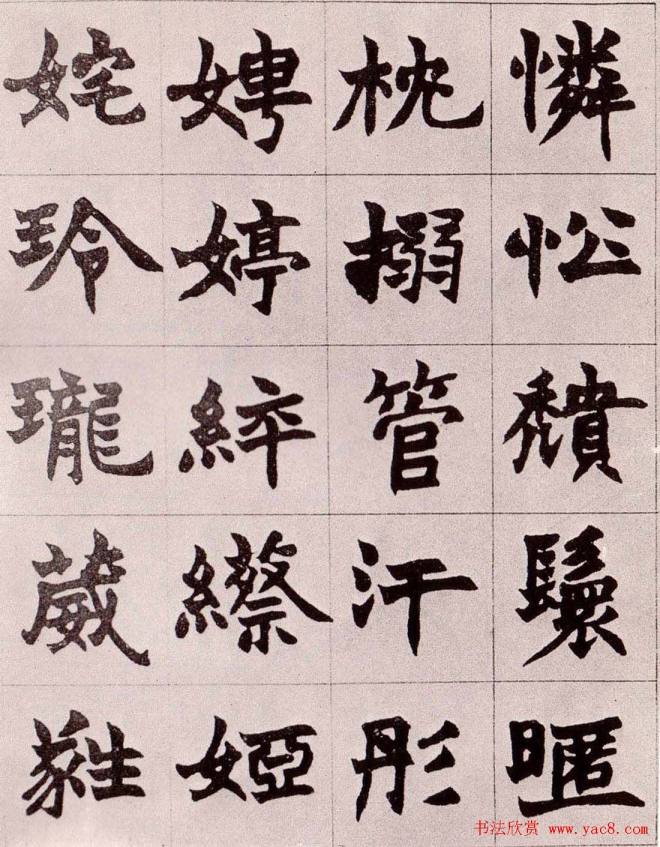 憐忪穨鬟暱
枕搦管汗彤
娉婷綷縩婭
姹玲瓏葳蕤
书法欣赏 www.yac8.com